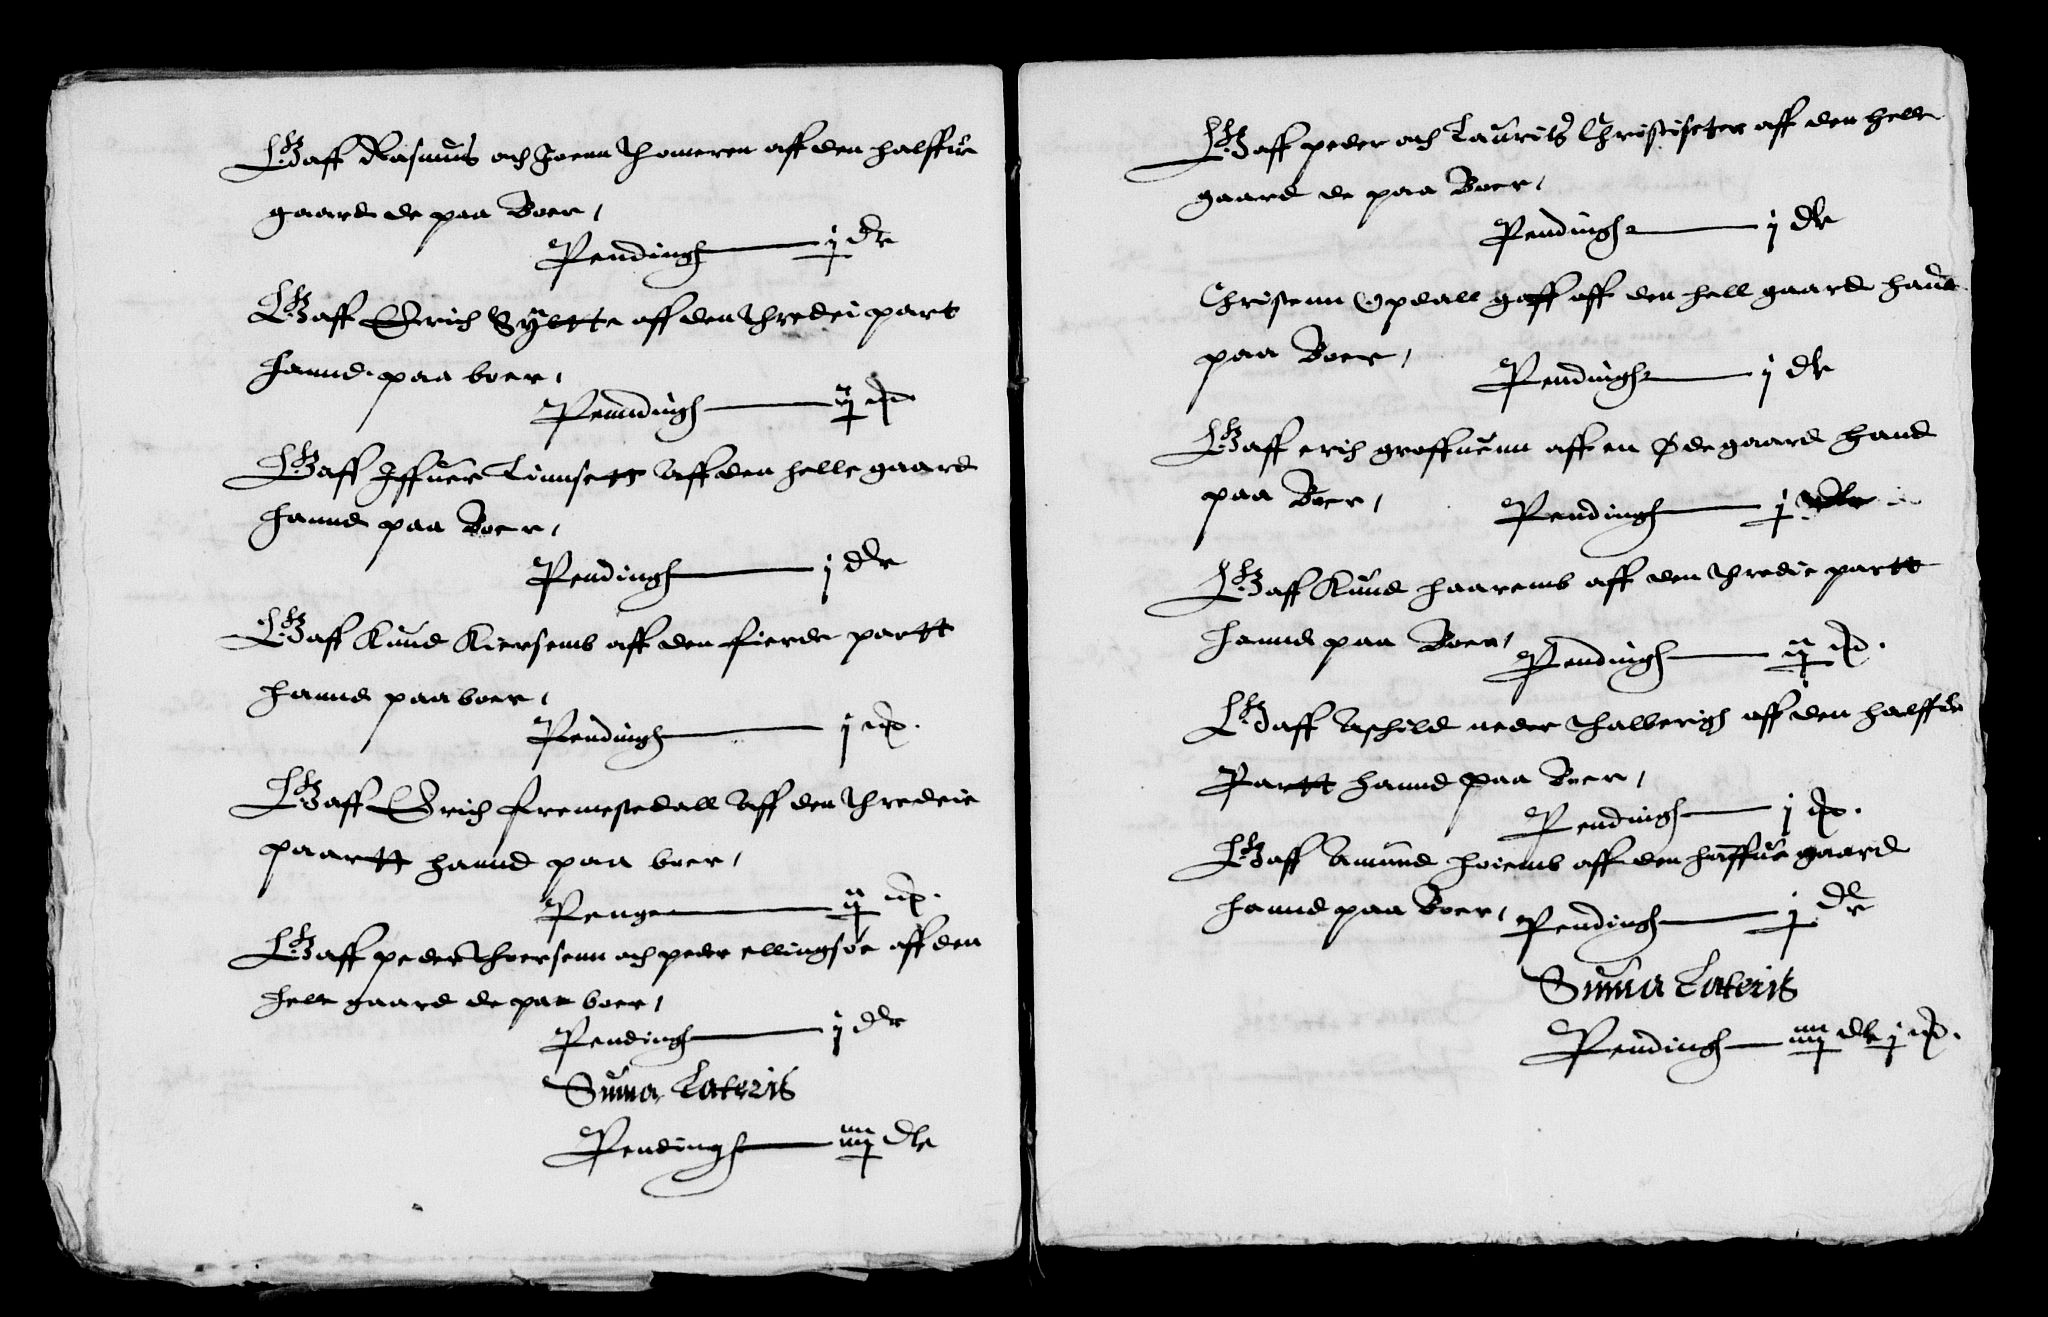 Gaff Rasmus och Joenn Thomeren aff den halffue
gaard de paa Boer,
Pendingh j dlr
Gaff Erich Syltte aff den thredei part
hannd paa boer,
Penndingh ij
Gaff Iffuer Linnsett aff den helle gaard
hannd paa Boer,
Pendingh j dlr
Gaff Knud Kiersemb aff den fierde partt
hannd paa boer,
Pendingh j
Gaff Erich Fremstedall aff den thredeie
paartt hannd paa boer,
Penge ij
Gaff peder Thoersenn och peder ellingsøe aff den
hele gaard de paa boer,
Pendingh j dlr
Suma Lateris
Pendingh dlr
Gaff peder och Laurits Christiseter aff den helle
gaard de paa Boer,
Pendingh j dlr
Christenn Opdall gaff aff den hell gaard hand
paa Boer,
Pendingh j dlr
Gaff erich groffuenn aff en øde gaard hand
paa Boer,
Pendingh j
Gaff Knud haaremb aff den thredie partt
hannd paa Boer,
Pendingh ij
Gaff Aschild neder Thalberigh aff den halffue
Partt hannd paa Boer,
Pendingh j
Gaff Amund hoiemb aff den halffue gaard
hannd paa Boer,
Pendingh j dlr
Suma Lateris
Pendingh dlr j